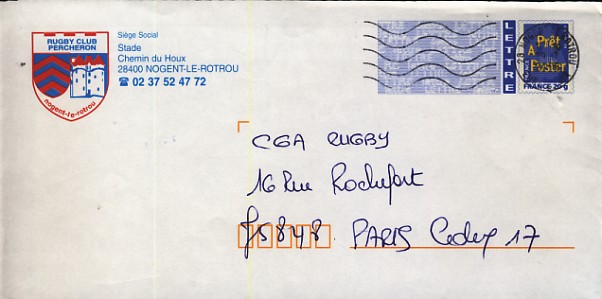 RUGBY CLUB
PERCHERON
nogent-le-rotrou
Siège Social
Stade
Chemin du Houx
28400 NOGENT-LE-ROTROU
☎ 02 37 52 47 72
LETTRE
Prêt
A
Poster
FRANCE 20g
CGA RUGBY
16 Rue Rochefort
75848 PARIS Cedex 17